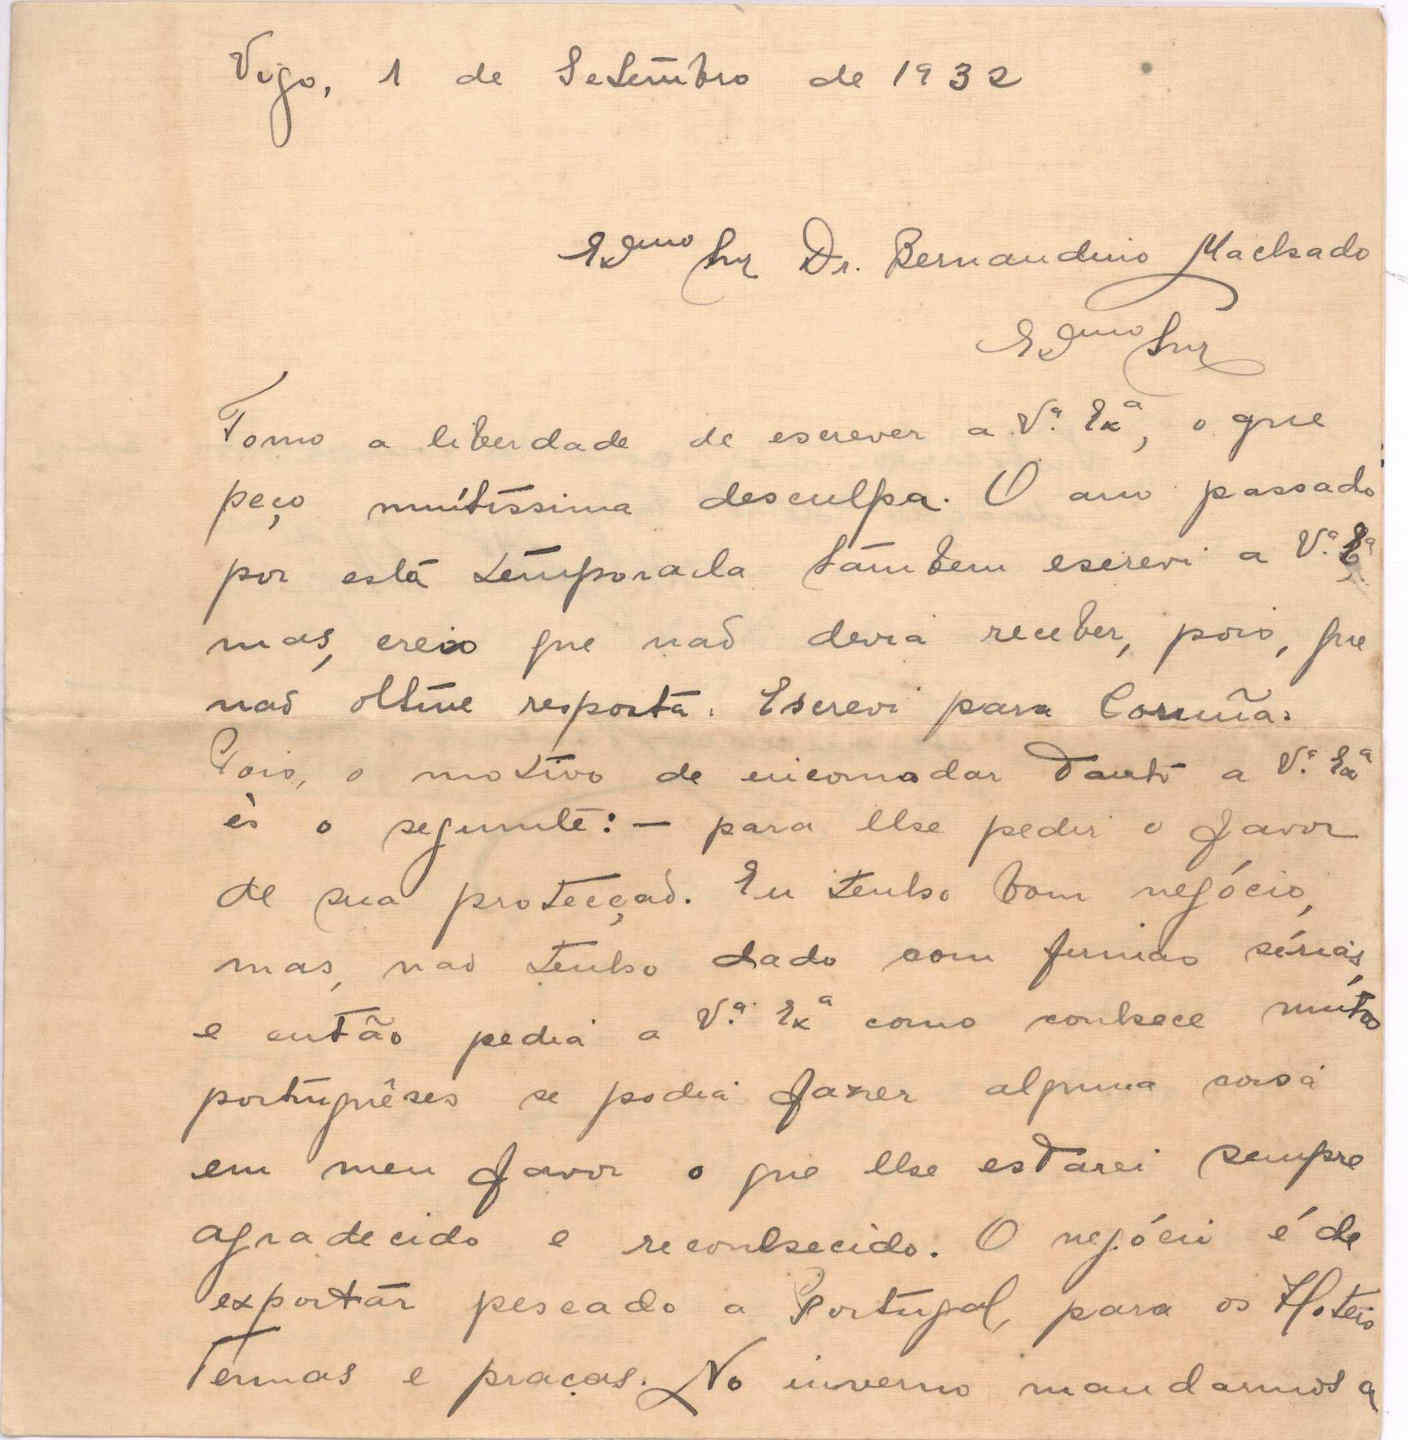 Vigo, 1 de Setembro de 1932
Exmo Snr Dr. Bernardino Machado
Exmo Snr
Tomo a liberdade de escrever a V.ª Exª, o que
peço muitíssima desculpa. O ano passado
por está temporada tambem escrevi a V.ª Eª
mas, creio que naõ devia receber, pois, que
naõ obtive resposta. Escrevi para Coruña.
Pois, o motivo de encomodar tanto a V.ª Exª
ès o seguinte: — para lhe pedir o favor
de sua protecçaõ. Eu tenho bom negócio,
mas, naõ tenho dado com firmas sérias,
e então pedia a V.ª Exª como conhece muitos
portuguêses se podia fazer alguma coisa
em meu favor o que lhe estarei sempre
agradecido e reconhecido. O negócio é de
exportár pescado a Portugal, para os Hoteis
Termas e praças. No inverno mandarmos a